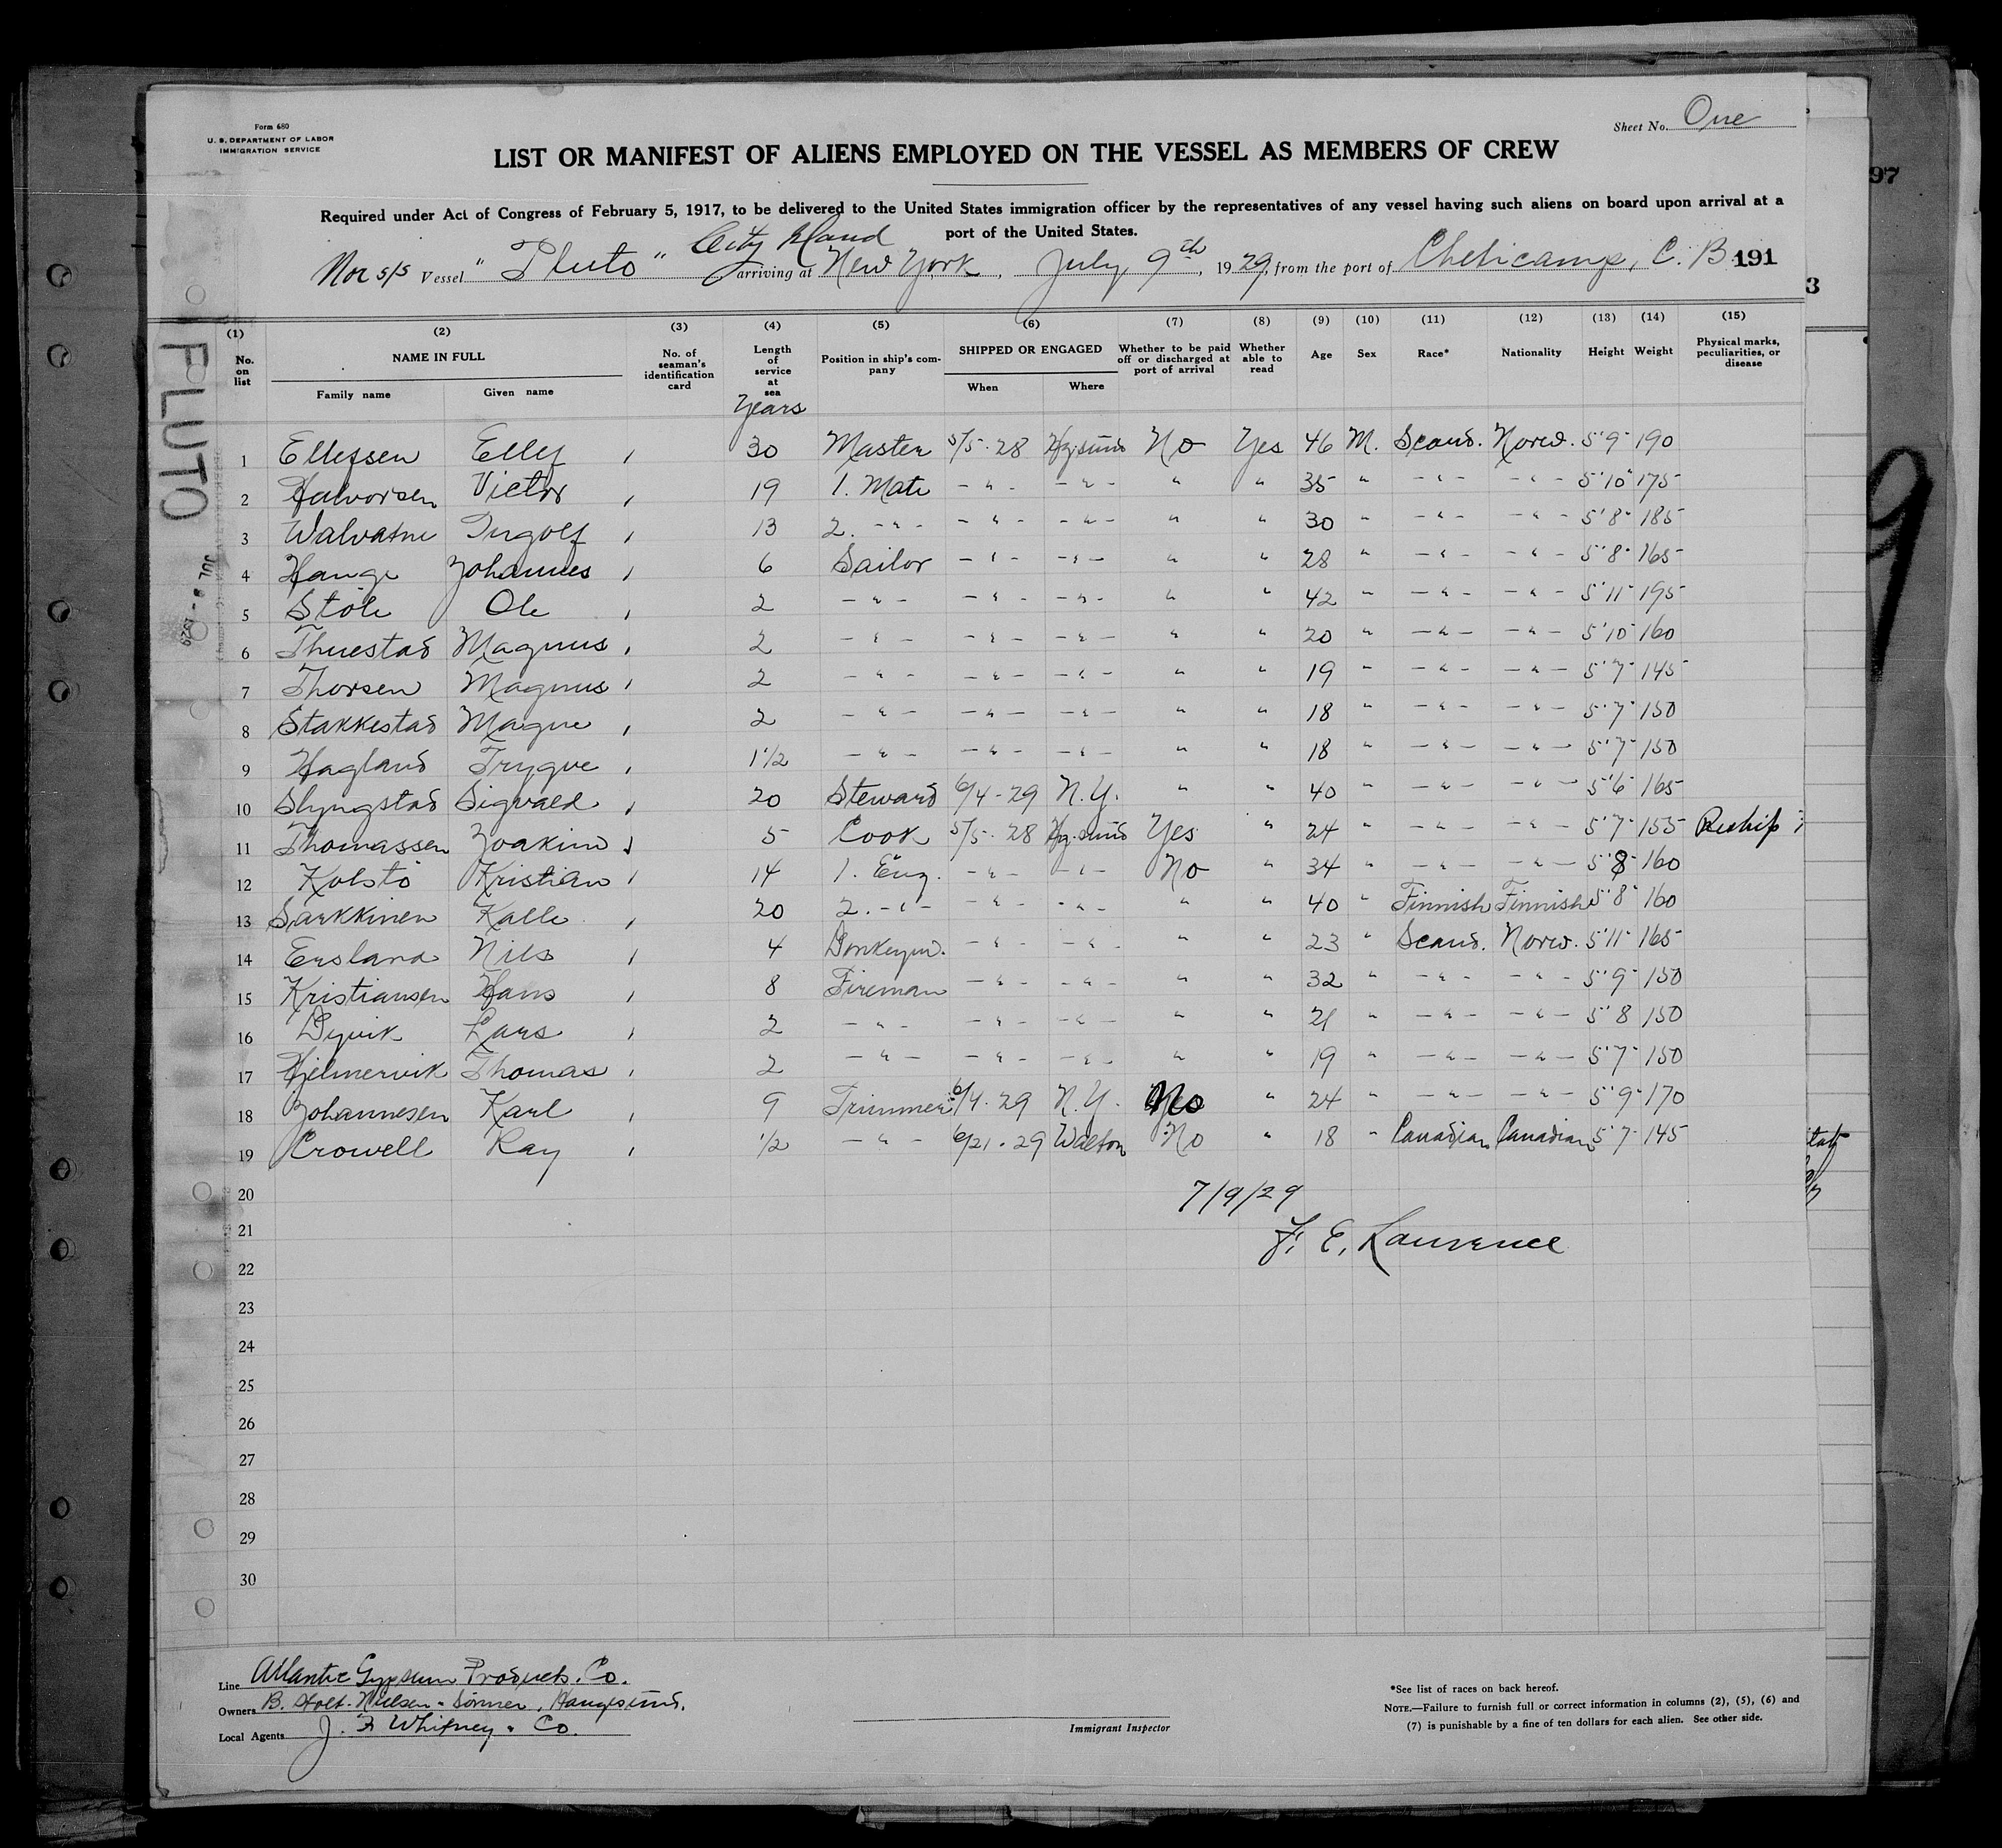 Form 680
U. S. DEPARTMENT OF LABOR
IMMIGRATION SERVICE
Sheet No. One
LIST OR MANIFEST OF ALIENS EMPLOYED ON THE VESSEL AS MEMBERS OF CREW
Required under Act of Congress of February 5, 1917, to be delivered to the United States immigration officer by the representatives of any vessel having such aliens on board upon arrival at a
port of the United States.
City Island
Nor s/s Vessel "Pluto" arriving at New York, July, 9th, 1929, from the port of Cheticamp, C. B. 191
(1) (2) (3) (4) (5) (6) (7) (8) (9) (10) (11) (12) (13) (14) (15)
No. on list NAME IN FULL Family name Given name No. of seaman's identification card Length of service at sea Years Position in ship's company SHIPPED OR ENGAGED When Where Whether to be paid off or discharged at port of arrival Whether able to read Age Sex Race* Nationality Height Weight Physical marks, peculiarities, or disease
1 Ellefsen Ellef 30 Master 5/5-28 Hgsund No Yes 46 M. Scand. Norw. 5'9" 190
2 Halvorsen Victor 19 1. Mate -"- -"- " " 35 " -"- -"- 5'10" 175
3 Walvatne Ingolf 13 2. -"- -"- -"- " " 30 " -"- -"- 5'8" 185
4 Hauge Johannes 6 Sailor -"- -"- " " 28 " -"- -"- 5'8" 165
5 Stöle Ole 2 -"- -"- -"- " " 42 " -"- -"- 5'11" 195
6 Thuestad Magnus 2 -"- -"- -"- " " 20 " -"- -"- 5'10" 160
7 Thorsen Magnus 2 -"- -"- -"- " " 19 " -"- -"- 5'7" 145
8 Stakkestad Magne 2 -"- -"- -"- " " 18 " -"- -"- 5'7" 150
9 Hagland Trygve 1 1/2 -"- -"- -"- " " 18 " -"- -"- 5'7" 150
10 Slyngstad Sigvald 20 Steward 6/4-29 N.Y. " " 40 " -"- -"- 5'6" 165
11 Thomassen Joakim 5 Cook 5/5-28 Hg.sund Yes " 24 " -"- -"- 5'7" 155 Reship
12 Kolstö Kristian 14 1. Eng. -"- -"- No " 34 " -"- -"- 5'8" 160
13 Sarkkinen Kalle 20 2. -"- -"- -"- " " 40 " Finnish Finnish 5'8" 160
14 Ersland Nils 4 Donkeym. -"- -"- " " 23 " Scand. Norw. 5'11" 165
15 Kristiansen Hans 8 Fireman -"- -"- " " 32 " -"- -"- 5'9" 150
16 Dyvik Lars 2 -"- -"- -"- " " 21 " -"- -"- 5'8 150
17 Hjelmervik Thomas 2 -"- -"- -"- " " 19 " -"- -"- 5'7" 150
18 Johannesen Karl 9 Trimmer 6/4-29 N.Y. No " 24 " -"- -"- 5'9" 170
19 Crowell Ray 1/2 -"- 6/21-29 Walton No " 18 " Canadian Canadian 5'7" 145
20
7/9/29
21
F. E. Laurence
22
23
24
25
26
27
28
29
30
Line Atlantic Gypsum Products. Co.
Owners B. Stolt-Nielsen - Sönner, Haugesund.
Local Agents J. F. Whitney & Co.
Immigrant Inspector
*See list of races on back hereof.
NOTE.—Failure to furnish full or correct information in columns (2), (5), (6) and
(7) is punishable by a fine of ten dollars for each alien. See other side.
PLUTO
97
3
9